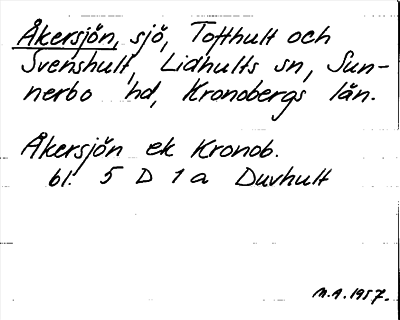 Åkersjön, sjö, Tofthult och
Svenshult, Lidhults sn, Sun-
nerbo hd, Kronobergs län.
Åkersjön ek Kronob.
bl. 5 D 1 a Duvhult
M.A. 1957.